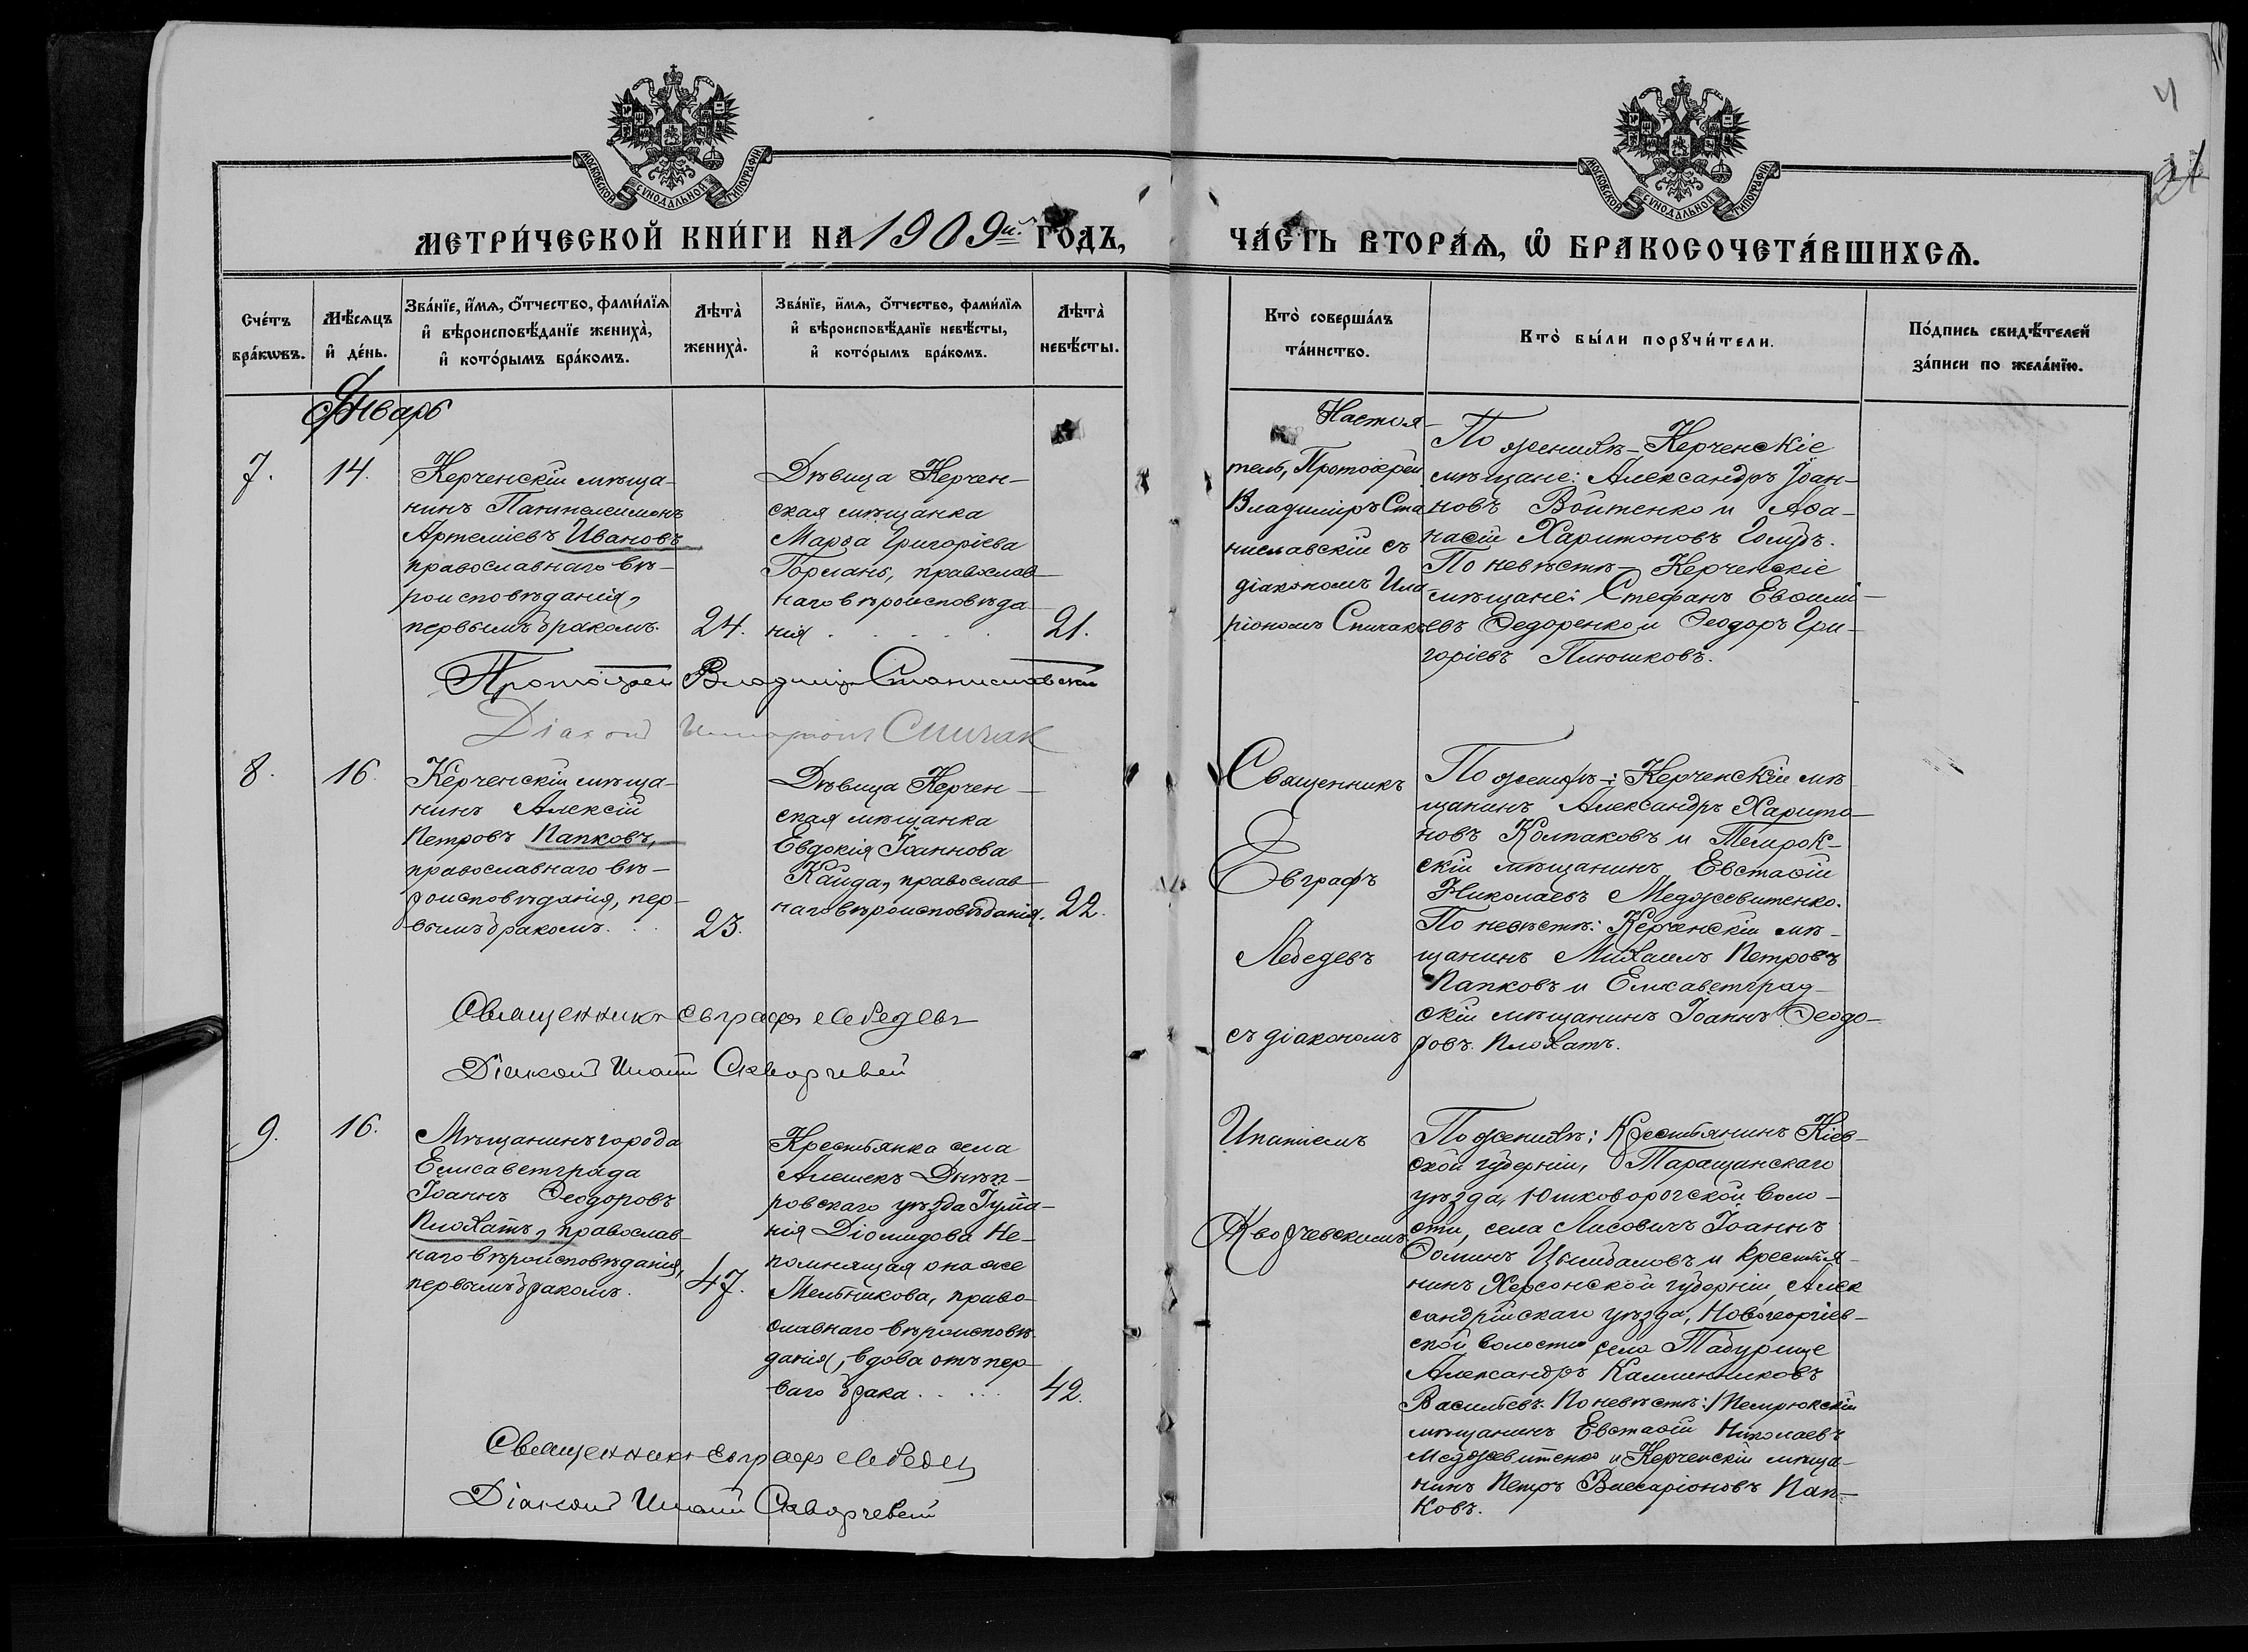 4
21
МОСКОВСКОЙ СУНОДАЛЬНОЙ ТИПОГРАФІИ
МОСКОВСКОЙ СУНОДАЛЬНОЙ ТИПОГРАФІИ
МЕТРИ́ЧЕСКОЙ КНИ́ГИ НА 1909й. ГОДЪ,
ЧА́СТЬ ВТОРА́Ѧ, Ѽ БРАКОСОЧЕТА́ВШИХСѦ.
Сче́тъ
бра́кѡвъ.
Мѣ́сяцъ
и҆ де́нь.
Зва́нїе, и҆́мѧ, ѻ҆́тчество, фами́лїѧ
и҆ вѣроисповѣ́данїе жениха̀,
и҆ кото́рымъ бра́комъ.
Лѣта̀
жениха̀.
Зва́нїе, и҆́мѧ, ѻ҆́тчество, фами́лїѧ
и҆ вѣроисповѣ́данїе невѣ́сты,
и҆ кото́рымъ бра́комъ.
Лѣта̀
невѣ́сты.
Кто̀ соверша́лъ
та́инство.
Кто̀ бы́ли порꙋчи́тели.
По́дпись свидѣ́телей
за́писи по жела́нїю.
Январь
7.
14.
Керченскій мѣща-
нинъ Пантелеимонъ
Артеміевъ Ивановъ
православнаго вѣ-
роисповѣданія,
первымъ бракомъ.
24.
Дѣвица Керчен-
ская мѣщанка
Марѳа Григоріева
Горлань, православ-
наго вѣроисповѣда-
нія . . . . .
21.
Настоя-
тель, Протоіерей
Владиміръ Ста
ниславскій съ
діакономъ Ила-
ріономъ Спичакъ
По женихѣ - Керченскіе
мѣщане: Александръ Іоан-
новъ Войтенко и Аѳа-
насій Харитоновъ Голубъ.
По невѣстѣ - Керченскіе
мѣщане: Стефанъ Евѳимі-
евъ Ѳедоренко и Ѳеодоръ Гри-
горіевъ Плюшковъ.
Протоіерей Владиміръ Станиславскій
Діаконъ Иларіонъ Спичак
8.
16.
Керченскій мѣща-
нинъ Алексій
Петровъ Папковъ,
православнаго вѣ-
роисповѣданія, пер-
вымъ бракомъ. . .
23.
Дѣвица Керчен-
ская мѣщанка
Евдокія Іоаннова
Кайда, православ-
наго вѣроисповѣданія.
22.
Священникъ
Евграфъ
Лебедевъ
съ діакономъ
По женихѣ: Керченскій мѣ
щанинъ Александръ Харито-
новъ Колпаковъ и Темрюк-
скій мѣщанинъ Евстаѳій
Николаевъ Медожевитенко.
По невѣстѣ: Керченскій мѣ-
щанинъ Михаилъ Петровъ
Папковъ и Елисаветград-
скій мѣщанинъ Іоаннъ Ѳеодо-
ровъ Плохатъ.
Священникъ Евграфъ Лебедевъ
Діаконъ Ипатій Скворчевскій
9.
16.
Мѣщанинъ города
Елисаветграда
Іоаннъ Ѳеодоровъ
Плохатъ, православ-
наго вѣроисповѣданія,
первымъ бракомъ.
47.
Крестьянка села
Алешекъ Днѣп-
ровскаго уѣзда Іулiа-
нія Діомидова Не-
помнящая она же
Мельникова, право-
славнаго вѣроисповѣ-
данія, вдова отъ пер-
ваго брака . . . .
42.
Ипатіемъ
Скворчевскимъ
По женихѣ: Крестьянинъ Кіев-
ской губерніи, Таращанскаго
уѣзда, Юшковорогской воло-
сти, села Лисовичъ Іоаннъ
Ѳоминъ Цымбаловъ и крестья-
нинъ Херсонской губерніи, Алек
сандрійскаго уѣзда, Новогеоргіев-
ской волости села Табурище
Александръ Калинниковъ
Васильевъ. По невѣстѣ: Темрюкскій
мѣщанинъ Евстаѳій Николаевъ
Медожевитенко и Керченскій мѣща-
нинъ Петръ Виссаріоновъ Пап-
ковъ.
Священникъ Евграфъ Лебедевъ
Діаконъ Ипатій Скворчевскій